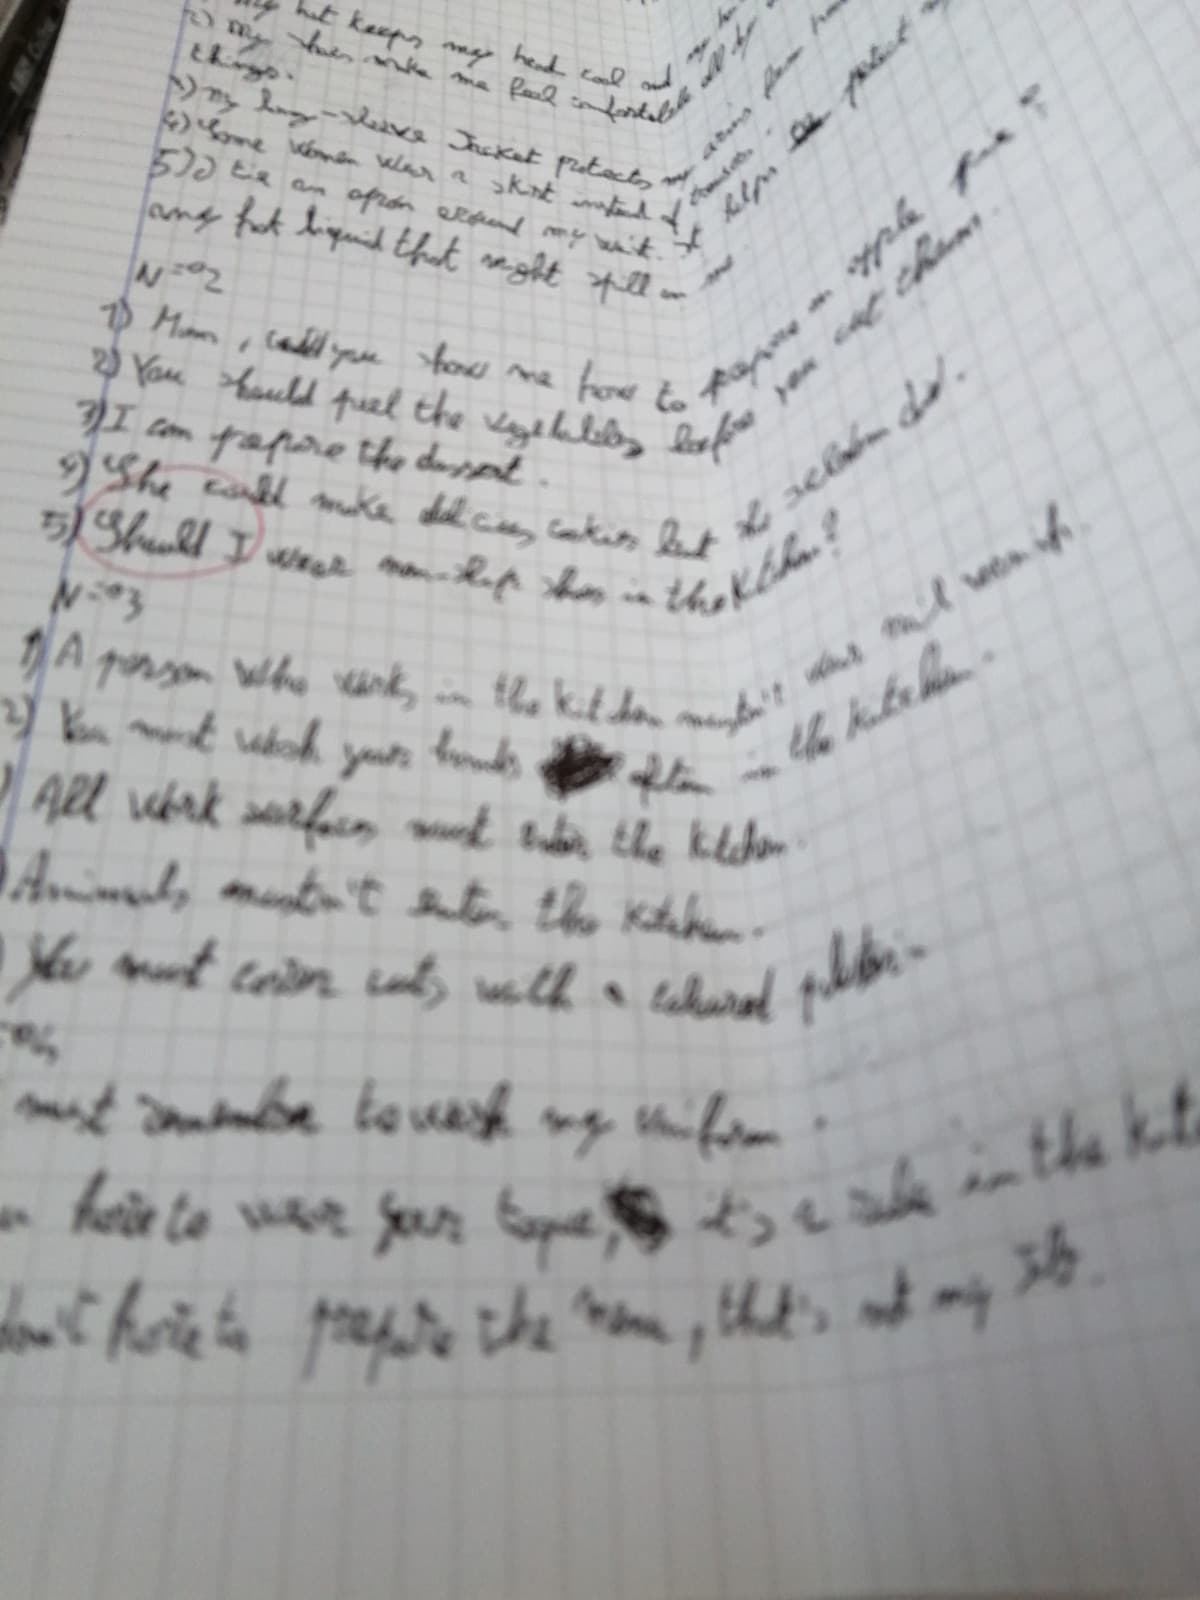 my hat keeps my head cool and my
2) My shoes make me feel comfortable all day
things.
3) My long-sleeve Jacket protects my arms from
4) Some women wear a skirt instead of trousers.
5) I tie an apron around my It helps protect
any hot liquid that might spill on me
N=°2
1) Mum, could you show me how to prepare an apple pie?
2) You should peel the vegetables before you cut them.
3) I can prepare the dessert.
4) She could make delicious cookies but she seldom did.
5) Should I wear non-slip shoes in the kitchen?
N=°3
1) A person who works in the kitchen mustn't wear nail varnish.
2) You must wash your hands often in the kitchen.
) All work surfaces must enter the kitchen.
) Animals mustn't enter the kitchen.
) You must cover cuts with a coloured
=°4
must remember to wash my uniform.
have to wear your toque, it's a rule in the
don't have to prepare the menu, that's not my job.